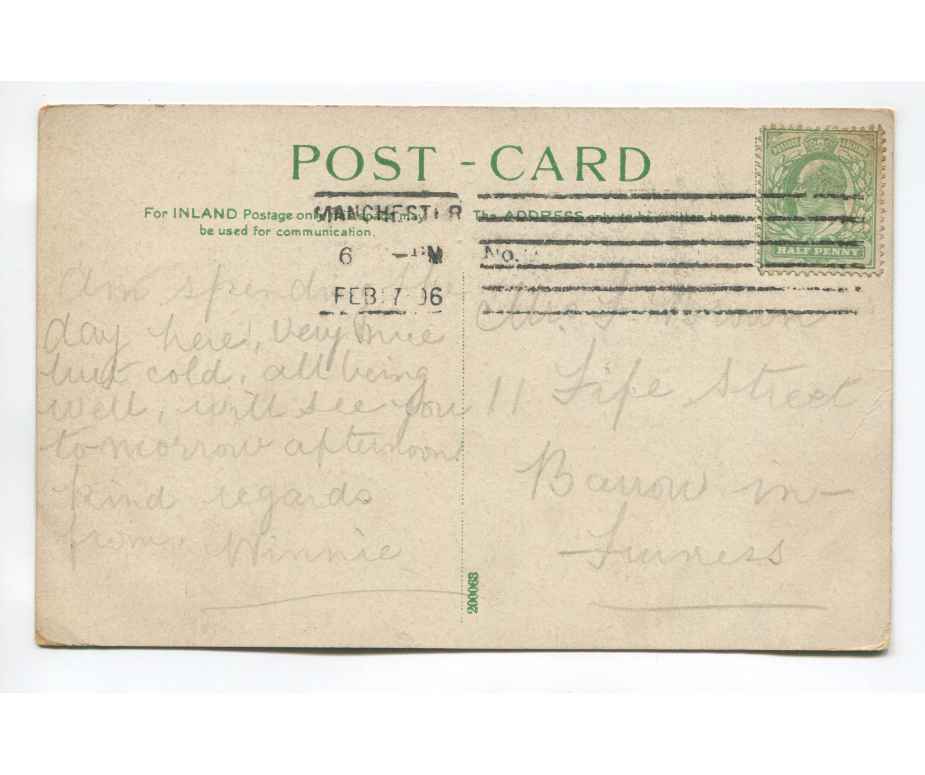 POST - CARD
For INLAND Postage only this space may
be used for communication.
The ADDRESS only to be written here
MANCHESTER
6 - PM
FEB 7 06
No.
HALF PENNY
Am spending the
day here, very nice
but cold, all being
well, will see you
tomorrow afternoon
kind regards
from Winnie
Brown
11 Fife Street
Barrow-in-
Furness
200063